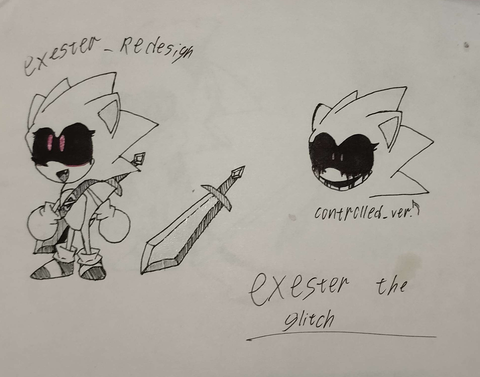 exester_Redesign
controlled_ver.
exester the
glitch